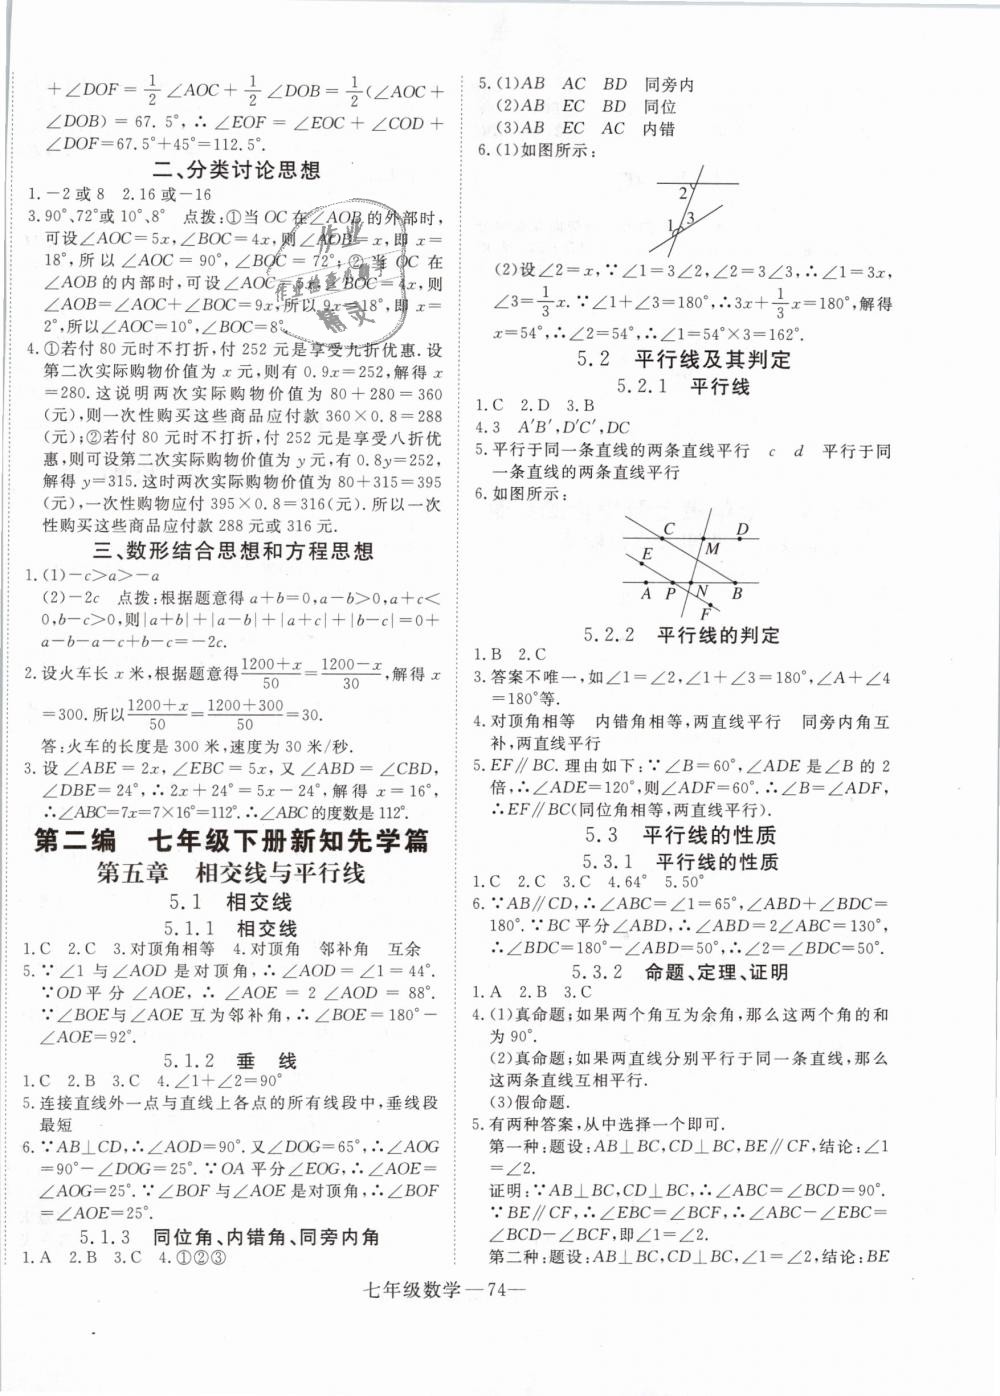 +∠DOF=1/2∠AOC+1/2∠DOB=1/2(∠AOC+
∠DOB)=67.5°,∴∠EOF=∠EOC+∠COD+
∠DOF=67.5°+45°=112.5°.
二、分类讨论思想
1.-2或8 2.16或-16
3.90°、72°或10°、8° 点拨:①当OC在∠AOB的外部时,
可设∠AOC=5x,∠BOC=4x,则∠AOB=x,即x=
18°,所以∠AOC=90°,∠BOC=72°;②当OC在
∠AOB的内部时,可设∠AOC=5x,∠BOC=4x,则
∠AOB=∠AOC+∠BOC=9x,所以9x=18°,即x=
2°,所以∠AOC=10°,∠BOC=8°.
4.①若付80元时不打折,付252元是享受九折优惠.设
第二次实际购物价值为x元,则有0.9x=252,解得x
=280.这说明两次实际购物价值为80+280=360
(元),则一次性购买这些商品应付款360×0.8=288
(元);②若付80元时不打折,付252元是享受八折优
惠,则可设第二次实际购物价值为y元,有0.8y=252,
解得y=315.这时两次实际购物价值为80+315=395
(元),一次性购物应付395×0.8=316(元).所以一次
性购买这些商品应付款288元或316元.
三、数形结合思想和方程思想
1.(1)-c>a>-a
(2)-2c 点拨:根据题意得a+b=0,a-b>0,a+c<
0,b-c>0,则|a+b|+|a-b|+|a+c|+|b-c|=0+
a-b-a-c+b-c=-2c.
2.设火车长x米,根据题意得1200+x/50=1200-x/30,解得x
=300.所以1200+x/50=1200+300/50=30.
答:火车的长度是300米,速度为30米/秒.
3.设∠ABE=2x,∠EBC=5x,又∠ABD=∠CBD,
∠DBE=24°,∴2x+24°=5x-24°,解得x=16°,
∴∠ABC=7x=7×16°=112°.∴∠ABC的度数是112°.
第二编 七年级下册新知先学篇
第五章 相交线与平行线
5.1 相交线
5.1.1 相交线
1.C 2.C 3.对顶角相等 4.对顶角 邻补角 互余
5.∵∠1与∠AOD是对顶角,∴∠AOD=∠1=44°.
∵OD平分∠AOE,∴∠AOE=2∠AOD=88°.
∵∠BOE与∠AOE互为邻补角,∴∠BOE=180°-
∠AOE=92°.
5.1.2 垂 线
1.C 2.B 3.C 4.∠1+∠2=90°
5.连接直线外一点与直线上各点的所有线段中,垂线段
最短
6.∵AB⊥CD,∴∠AOD=90°.又∠DOG=65°,∴∠AOG
=90°-∠DOG=25°.∵OA平分∠EOG,∴∠AOE=
∠AOG=25°.∵∠BOF与∠AOE是对顶角,∴∠BOF
=∠AOE=25°.
5.1.3 同位角、内错角、同旁内角
1.A 2.B 3.C 4.①②③
5.(1)AB AC BD 同旁内
(2)AB EC BD 同位
(3)AB EC AC 内错
6.(1)如图所示:
2
1 3
(2)设∠2=x,∵∠1=3∠2,∠2=3∠3,∴∠1=3x,
∠3=1/3x.∵∠1+∠3=180°,∴3x+1/3x=180°,解得
x=54°,∴∠2=54°,∴∠1=54°×3=162°.
5.2 平行线及其判定
5.2.1 平行线
1.C 2.D 3.B
4.3 A′B′,D′C′,DC
5.平行于同一条直线的两条直线平行 c d 平行于同
一条直线的两条直线平行
6.如图所示:
C D
E M
A P N B
F
5.2.2 平行线的判定
1.B 2.C
3.答案不唯一,如∠1=∠2,∠1+∠3=180°,∠A+∠4
=180°等.
4.对顶角相等 内错角相等,两直线平行 同旁内角互
补,两直线平行
5.EF∥BC.理由如下:∵∠B=60°,∠ADE是∠B的2
倍,∴∠ADE=120°,则∠ADF=60°.∴∠B=∠ADF,
∴EF∥BC(同位角相等,两直线平行).
5.3 平行线的性质
5.3.1 平行线的性质
1.C 2.C 3.C 4.64° 5.50°
6.∵AB∥CD,∴∠ABC=∠1=65°,∠ABD+∠BDC=
180°.∵BC平分∠ABD,∴∠ABD=2∠ABC=130°,
∴∠BDC=180°-∠ABD=50°,∴∠2=∠BDC=50°.
5.3.2 命题、定理、证明
1.A 2.B 3.C
4.(1)真命题;如果两个角互为余角,那么这两个角的和
为90°.
(2)真命题;如果两直线分别平行于同一条直线,那么
这两条直线互相平行.
(3)假命题.
5.有两种答案,从中选择一个即可.
第一种:题设:AB⊥BC,CD⊥BC,BE∥CF,结论:∠1
=∠2.
证明:∵AB⊥BC,CD⊥BC,∴∠ABC=∠BCD=90°.
∵BE∥CF,∴∠EBC=∠BCF,∴∠ABC-∠EBC=
∠BCD-∠BCF,即∠1=∠2.
第二种:题设:AB⊥BC,CD⊥BC,∠1=∠2,结论:BE
七年级数学—74—
作业
作业检查小助手
精灵